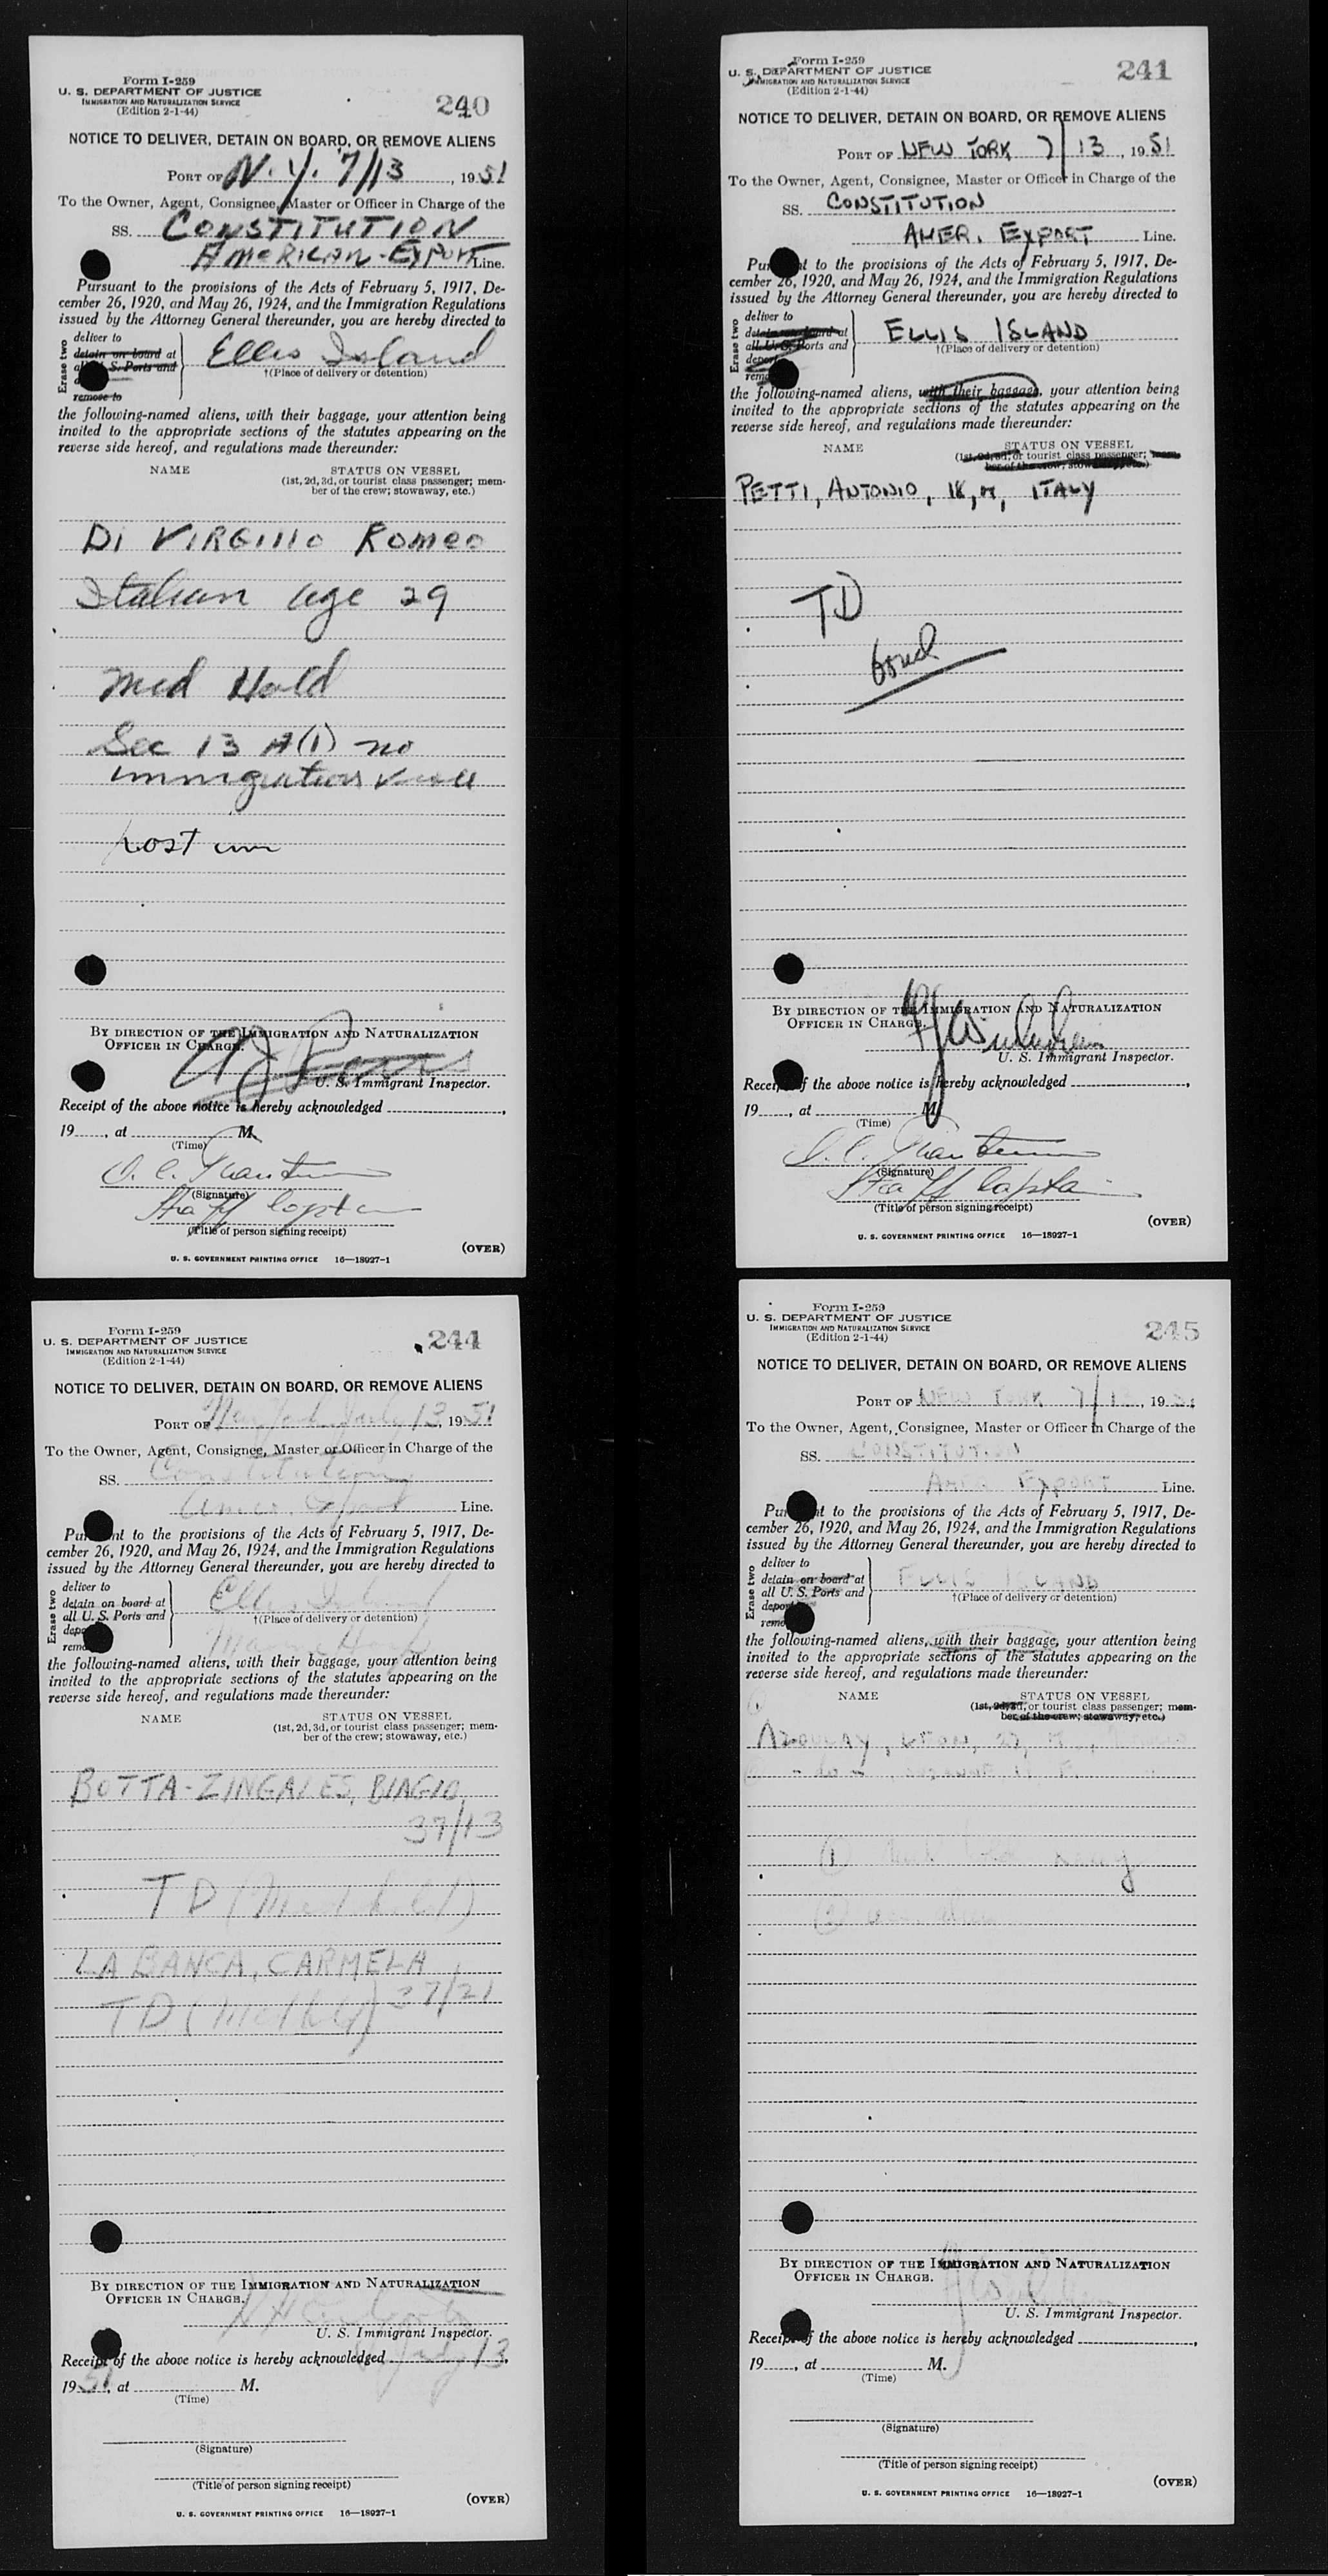 Form I-259
U. S. DEPARTMENT OF JUSTICE
IMMIGRATION AND NATURALIZATION SERVICE
(Edition 2-1-44)
240
NOTICE TO DELIVER, DETAIN ON BOARD, OR REMOVE ALIENS
PORT OF N. Y. 7/13, 1951
To the Owner, Agent, Consignee, Master or Officer in Charge of the
SS. CONSTITUTION
AMERICAN-EXPORT Line.
Pursuant to the provisions of the Acts of February 5, 1917, De-
cember 26, 1920, and May 26, 1924, and the Immigration Regulations
issued by the Attorney General thereunder, you are hereby directed to
Erase two
deliver to
detain on board at
S. Ports and
remove to
Ellis Island
†(Place of delivery or detention)
the following-named aliens, with their baggage, your attention being
invited to the appropriate sections of the statutes appearing on the
reverse side hereof, and regulations made thereunder:
NAME STATUS ON VESSEL
(1st, 2d, 3d, or tourist class passenger; mem-
ber of the crew; stowaway, etc.)
DI VIRGILIO ROMEO
Italian age 29
Med Hold
Sec 13 A(1) no
immigration
BY DIRECTION OF THE IMMIGRATION AND NATURALIZATION
OFFICER IN CHARGE.
U. S. Immigrant Inspector.
Receipt of the above notice is hereby acknowledged ,
19 , at M.
(Time)
(Signature)
Staff Captain
(Title of person signing receipt)
(OVER)
U. S. GOVERNMENT PRINTING OFFICE 16—18927-1
Form I-259
U. S. DEPARTMENT OF JUSTICE
IMMIGRATION AND NATURALIZATION SERVICE
(Edition 2-1-44)
241
NOTICE TO DELIVER, DETAIN ON BOARD, OR REMOVE ALIENS
PORT OF NEW YORK 7/13, 1951
To the Owner, Agent, Consignee, Master or Officer in Charge of the
SS. CONSTITUTION
AMER. EXPORT Line.
to the provisions of the Acts of February 5, 1917, De-
cember 26, 1920, and May 26, 1924, and the Immigration Regulations
issued by the Attorney General thereunder, you are hereby directed to
Erase two
deliver to
detain on board at
all U. S. Ports and
ELLIS ISLAND
†(Place of delivery or detention)
the following-named aliens, with their baggage, your attention being
invited to the appropriate sections of the statutes appearing on the
reverse side hereof, and regulations made thereunder:
NAME STATUS ON VESSEL
(1st, 2d, 3d, or tourist class passenger; mem-
ber of the crew; stowaway, etc.)
PETTI, ANTONIO, 18, M, ITALY
TD
bond
BY DIRECTION OF THE IMMIGRATION AND NATURALIZATION
OFFICER IN CHARGE.
U. S. Immigrant Inspector.
of the above notice is hereby acknowledged ,
19 , at M.
(Time)
(Signature)
Staff Captain
(Title of person signing receipt)
(OVER)
U. S. GOVERNMENT PRINTING OFFICE 16—18927-1
Form I-259
U. S. DEPARTMENT OF JUSTICE
IMMIGRATION AND NATURALIZATION SERVICE
(Edition 2-1-44)
244
NOTICE TO DELIVER, DETAIN ON BOARD, OR REMOVE ALIENS
PORT OF New York July 13, 1951
To the Owner, Agent, Consignee, Master or Officer in Charge of the
SS. Constitution
Amer. Export Line.
to the provisions of the Acts of February 5, 1917, De-
cember 26, 1920, and May 26, 1924, and the Immigration Regulations
issued by the Attorney General thereunder, you are hereby directed to
Erase two
deliver to
detain on board at
all U. S. Ports and
Ellis Island
†(Place of delivery or detention)
the following-named aliens, with their baggage, your attention being
invited to the appropriate sections of the statutes appearing on the
reverse side hereof, and regulations made thereunder:
NAME STATUS ON VESSEL
(1st, 2d, 3d, or tourist class passenger; mem-
ber of the crew; stowaway, etc.)
BOTTA-ZINGALES, BIAGIO
37/13
TD (Med hold)
LA BANCA, CARMELA
TD (Med hld) 37/21
BY DIRECTION OF THE IMMIGRATION AND NATURALIZATION
OFFICER IN CHARGE.
U. S. Immigrant Inspector.
Receipt of the above notice is hereby acknowledged July 13,
1951, at M.
(Time)
(Signature)
(Title of person signing receipt)
(OVER)
U. S. GOVERNMENT PRINTING OFFICE 16—18927-1
Form I-259
U. S. DEPARTMENT OF JUSTICE
IMMIGRATION AND NATURALIZATION SERVICE
(Edition 2-1-44)
245
NOTICE TO DELIVER, DETAIN ON BOARD, OR REMOVE ALIENS
PORT OF NEW YORK 7/13, 1951
To the Owner, Agent, Consignee, Master or Officer in Charge of the
SS. CONSTITUTION
AMER. EXPORT Line.
to the provisions of the Acts of February 5, 1917, De-
cember 26, 1920, and May 26, 1924, and the Immigration Regulations
issued by the Attorney General thereunder, you are hereby directed to
Erase two
deliver to
detain on board at
all U. S. Ports and
ELLIS ISLAND
†(Place of delivery or detention)
the following-named aliens, with their baggage, your attention being
invited to the appropriate sections of the statutes appearing on the
reverse side hereof, and regulations made thereunder:
NAME STATUS ON VESSEL
(1st, 2d, 3d, or tourist class passenger; mem-
ber of the crew; stowaway, etc.)
AZOULAY, LEON, 27, M.,
- do -
(1)
(2)
BY DIRECTION OF THE IMMIGRATION AND NATURALIZATION
OFFICER IN CHARGE.
U. S. Immigrant Inspector.
of the above notice is hereby acknowledged ,
19 , at M.
(Time)
(Signature)
(Title of person signing receipt)
(OVER)
U. S. GOVERNMENT PRINTING OFFICE 16—18927-1